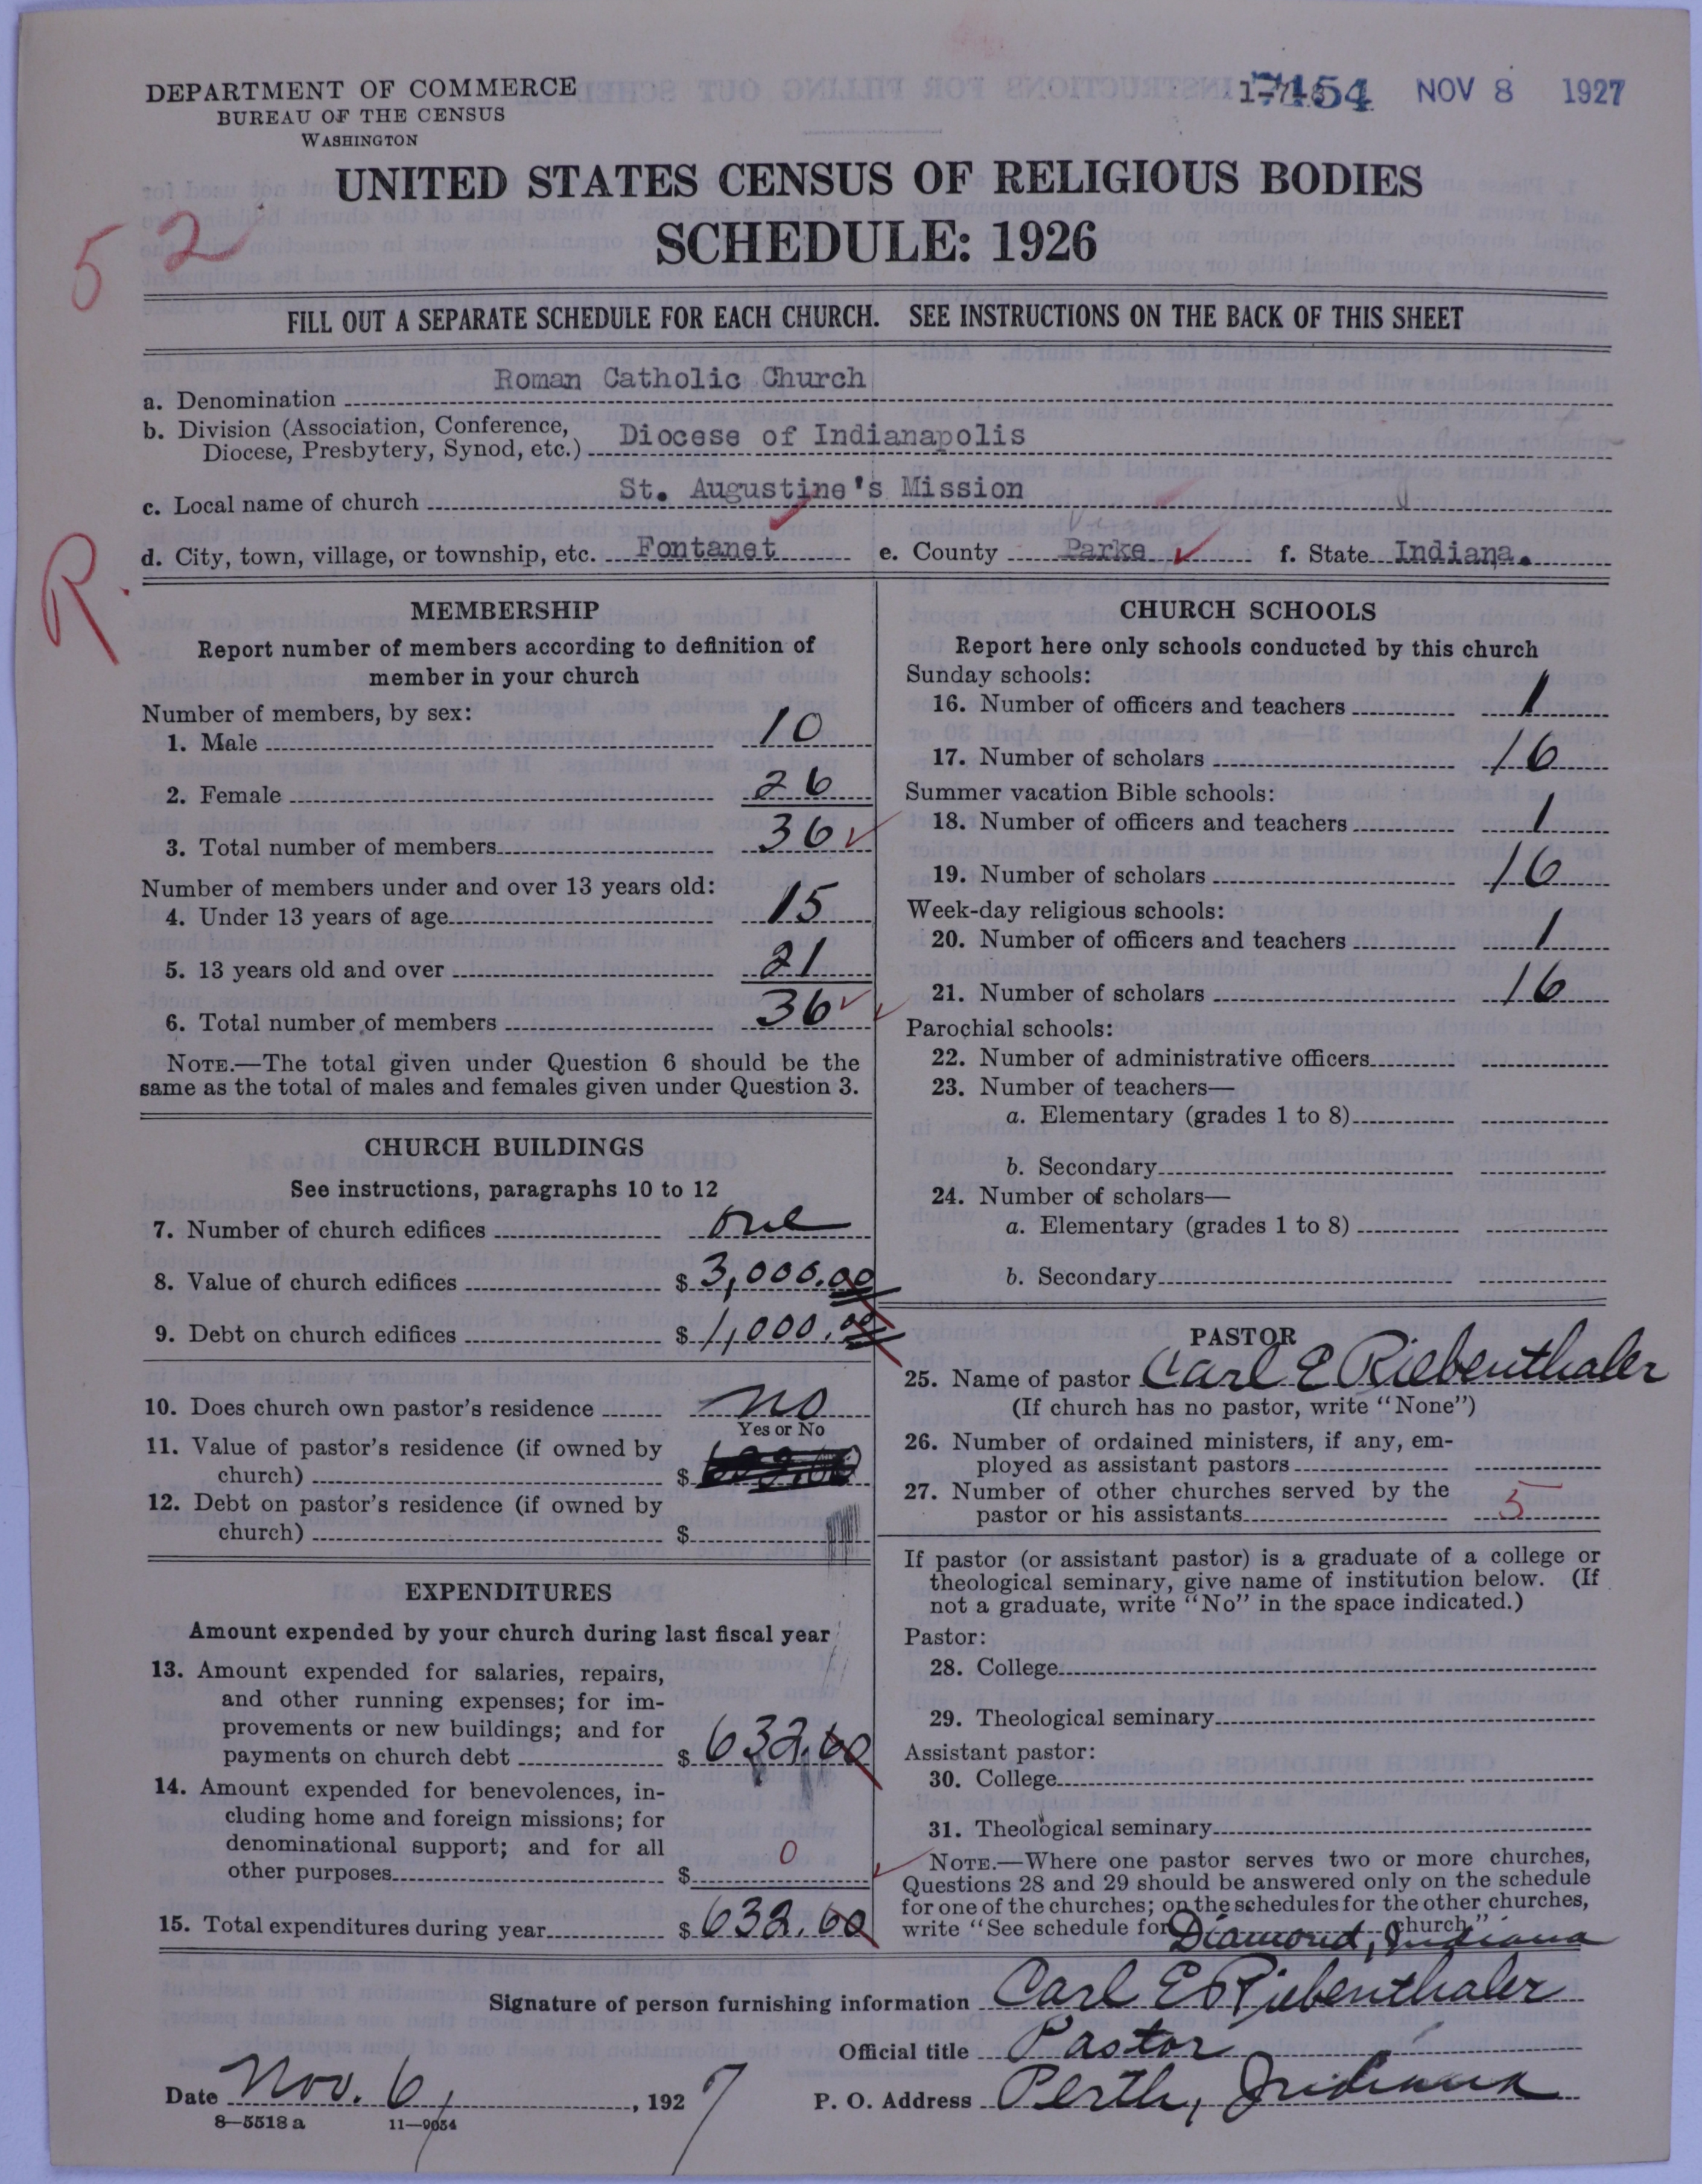 DEPARTMENT OF COMMERCE
BUREAU OF THE CENSUS
WASHINGTON
7154 NOV 8 1927
UNITED STATES CENSUS OF RELIGIOUS BODIES
SCHEDULE: 1926
52
FILL OUT A SEPARATE SCHEDULE FOR EACH CHURCH. SEE INSTRUCTIONS ON THE BACK OF THIS SHEET
a. Denomination Roman Catholic Church
b. Division (Association, Conference,
Diocese, Presbytery, Synod, etc.) Diocese of Indianapolis
c. Local name of church St. Augustine's Mission
d. City, town, village, or township, etc. Fontanet e. County Parke f. State Indiana.
R.
MEMBERSHIP
Report number of members according to definition of
member in your church
Number of members, by sex:
1. Male 10
2. Female 26
3. Total number of members 36
Number of members under and over 13 years old:
4. Under 13 years of age 15
5. 13 years old and over 21
6. Total number of members 36
NOTE.—The total given under Question 6 should be the
same as the total of males and females given under Question 3.
CHURCH BUILDINGS
See instructions, paragraphs 10 to 12
7. Number of church edifices one
8. Value of church edifices $ 3,000.00
9. Debt on church edifices $ 1,000.00
10. Does church own pastor's residence no
Yes or No
11. Value of pastor's residence (if owned by
church) $
12. Debt on pastor's residence (if owned by
church) $
EXPENDITURES
Amount expended by your church during last fiscal year
13. Amount expended for salaries, repairs,
and other running expenses; for im-
provements or new buildings; and for
payments on church debt $ 632.60
14. Amount expended for benevolences, in-
cluding home and foreign missions; for
denominational support; and for all
other purposes $ 0
15. Total expenditures during year $ 632.60
CHURCH SCHOOLS
Report here only schools conducted by this church
Sunday schools:
16. Number of officers and teachers 1
17. Number of scholars 16
Summer vacation Bible schools:
18. Number of officers and teachers 1
19. Number of scholars 16
Week-day religious schools:
20. Number of officers and teachers 1
21. Number of scholars 16
Parochial schools:
22. Number of administrative officers
23. Number of teachers—
a. Elementary (grades 1 to 8)
b. Secondary
24. Number of scholars—
a. Elementary (grades 1 to 8)
b. Secondary
PASTOR
25. Name of pastor Carl E Riebenthaler
(If church has no pastor, write "None")
26. Number of ordained ministers, if any, em-
ployed as assistant pastors
27. Number of other churches served by the
pastor or his assistants 5
If pastor (or assistant pastor) is a graduate of a college or
theological seminary, give name of institution below. (If
not a graduate, write "No" in the space indicated.)
Pastor:
28. College
29. Theological seminary
Assistant pastor:
30. College
31. Theological seminary
NOTE.—Where one pastor serves two or more churches,
Questions 28 and 29 should be answered only on the schedule
for one of the churches; on the schedules for the other churches,
write "See schedule for Diamond, Indiana church."
Signature of person furnishing information Carl E Riebenthaler
Official title Pastor
Date Nov. 6, 1927 P. O. Address Perth, Indiana
8—5518 a 11—9054